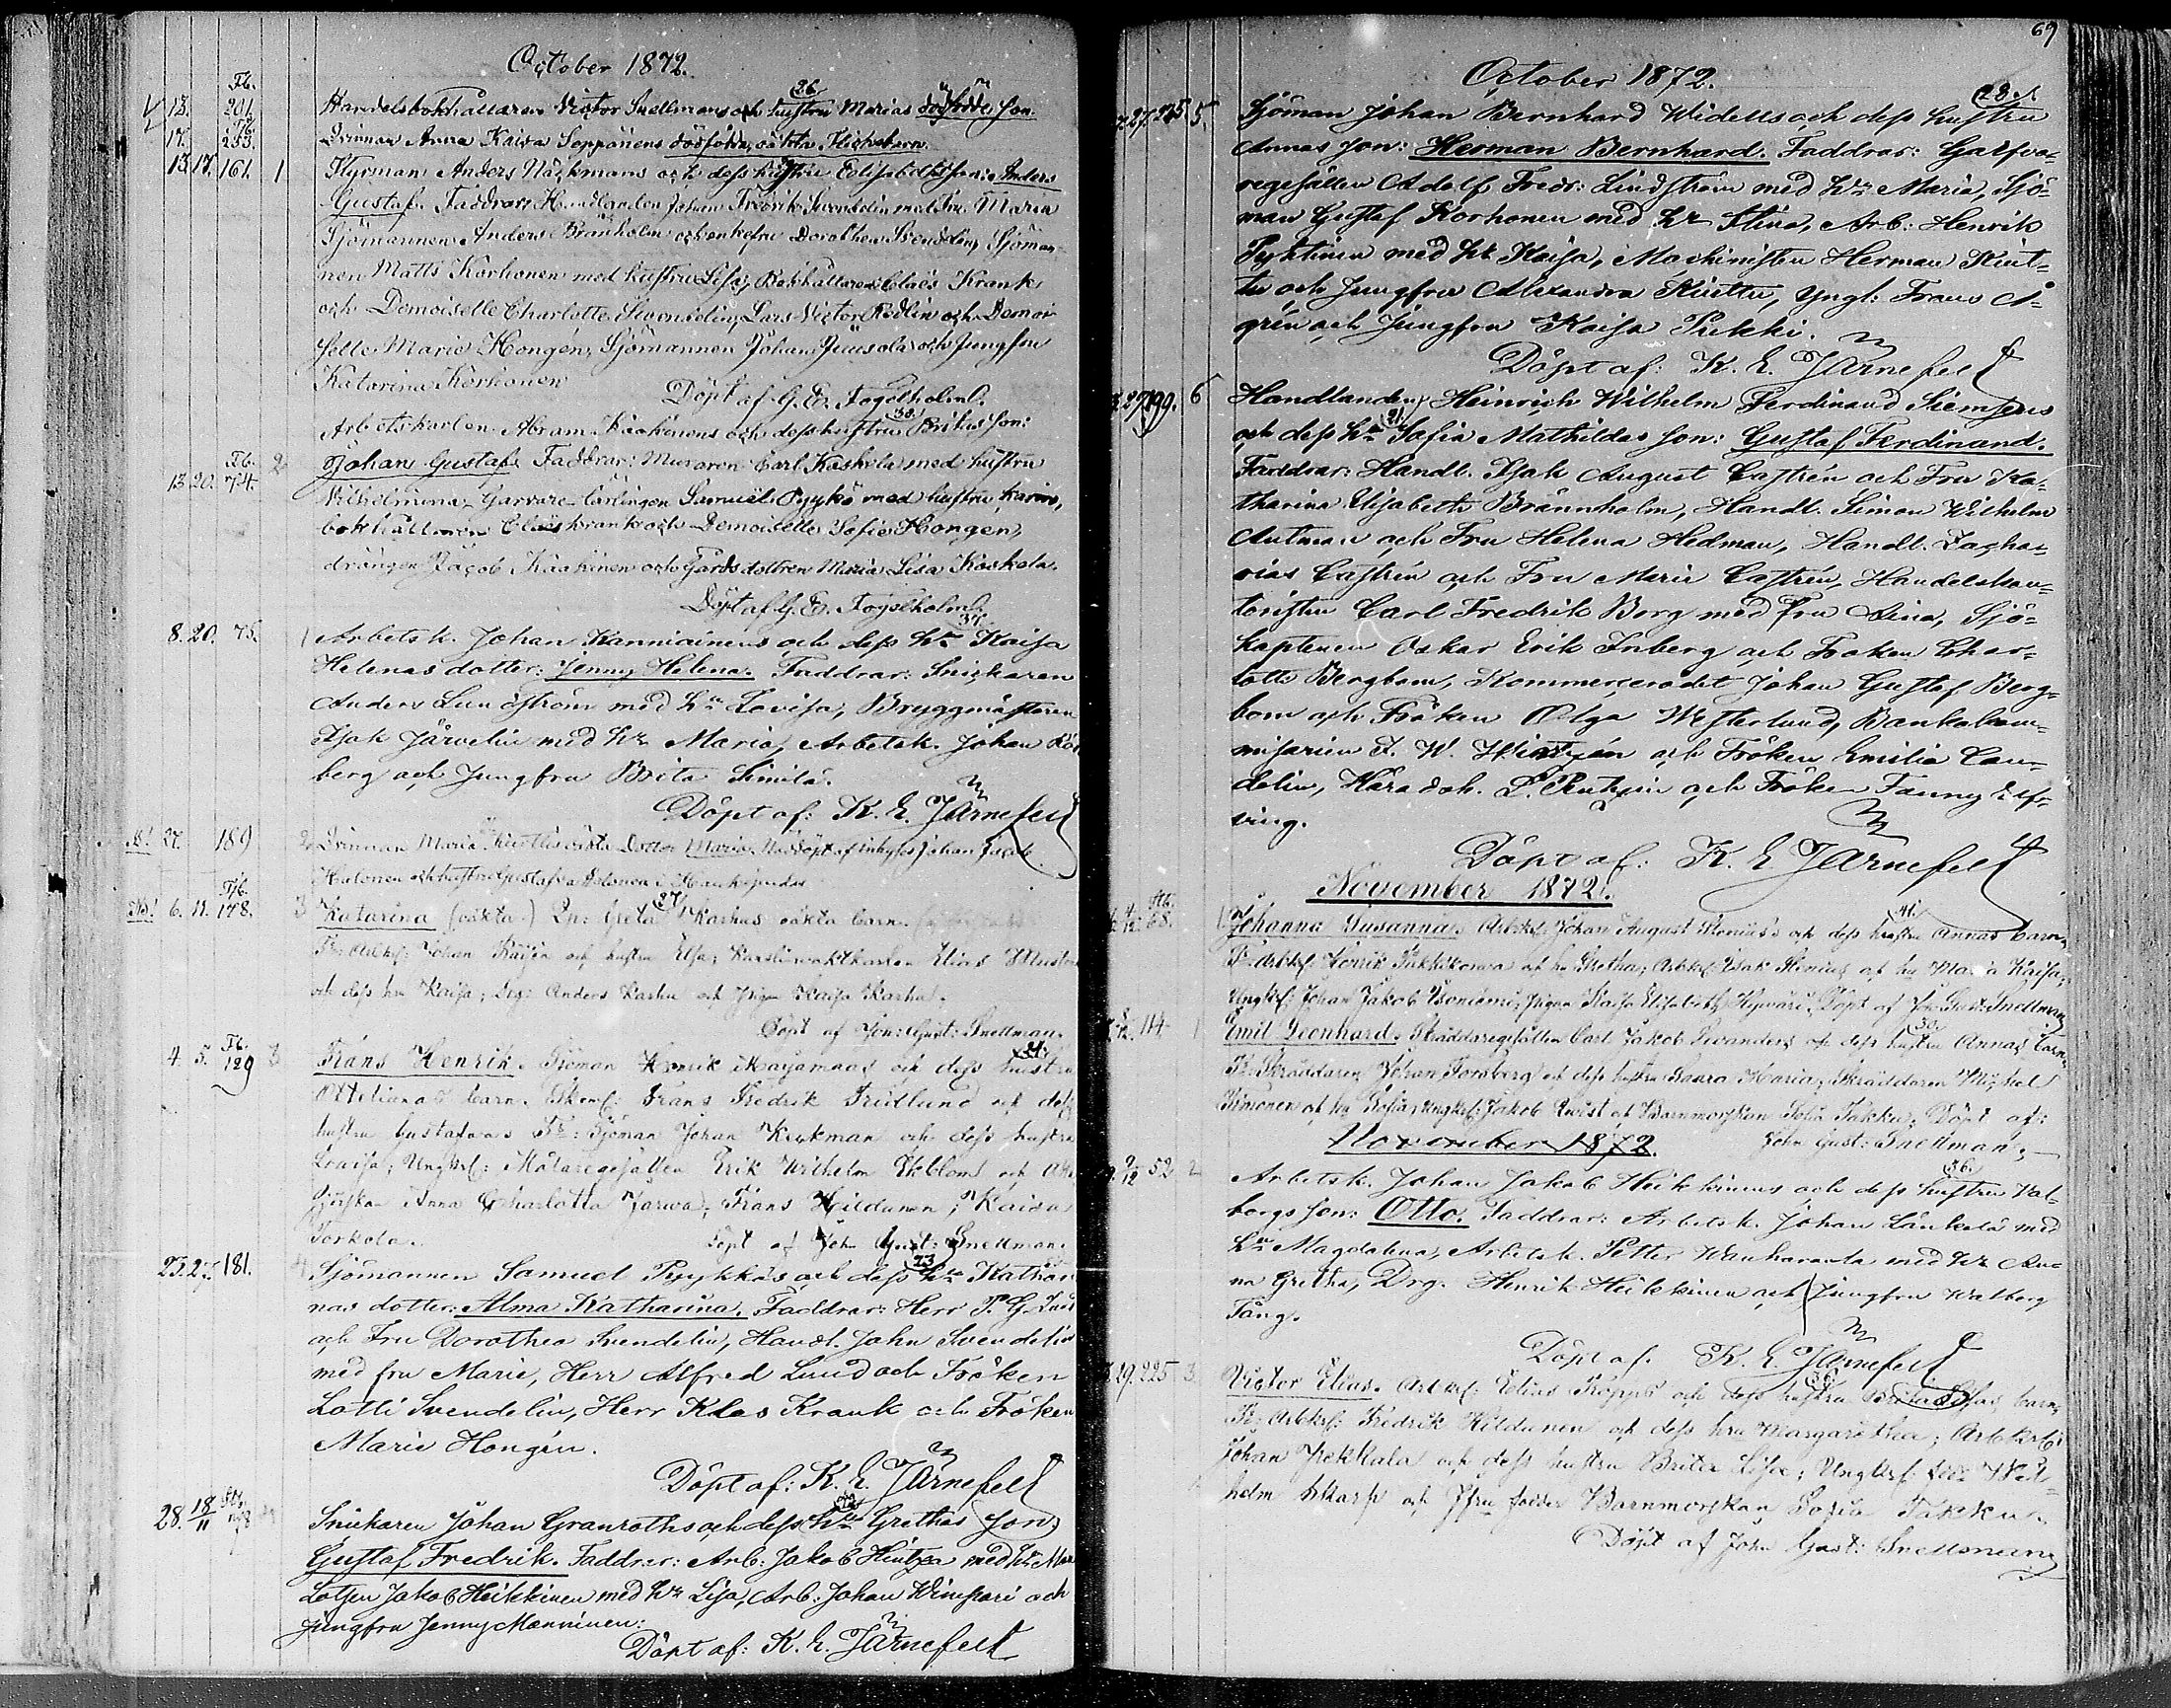 October 1872.
Fb.
26
13. 201. Handelsbokhållaren Victor Snellmans och hustru Marias dödfödde Son.
Fb.
17. 253. Qvinnan Anna Kaisa Seppänens dödfödda, oäkta Flickebarn.
13. 17. 161. 1 Styrman Anders Näckmans och dess hustru Elisabeths son: Anders
Gustaf. Faddrar: Handlanden Johan Fredrik Svendelin med fru Maria
Sjömannen Anders Brånholm och enkefru Dorothea Svendelin, Sjöman-
nen Matts Korhonen med hustru Lisa, Bokhållaren Claës Krank
och Demoiselle Charlotte Svendelin, Lars Victor Rödlin och Demoi-
selle Marie Hongén, Sjömannen Johan Juusola och Jungfru
Katarina Korhonen
Döpt af G. E. Fogelholm.
30.
Arbetskarlen Abram Kaakinens och dess hustru Britas son:
Fb.
13. 20. 74. 2 Johan Gustaf. Faddrar: Muraren Carl Koskela med hustru
Wilhelmina, Garvare lärlingen Samuel Pyykö med hustru Karin,
bokhållaren Claës Krank och Demoiselle Sofie Hongen,
drängen Jacob Kaakinen och Gårdsdottren Maria Lisa Koskela.
Döpt af G. E. Fogelholm.
37.
8. 20. 75. 1 Arbetsk. Johan Kanniainens och dess hu Kaisa
Helenas dotter: Jenny Helena. Faddrar: Snickaren
Anders Lundström med hu Lovisa, Bryggmästaren
Isak Järvelin med hu Maria, Arbetsk. Johan Kö
berg och Jungfru Brita Simila.
Döpt af: K. E. Järnefelt
27. 189 2 Qvinnan Maria oäkta Dotter Maria. Nöddöpt af inhyses Johan Jacob
Halonen och hustru Gustafva Halonen i Haukipudas
Fb.
27
NB! 6. 11. 178. 3 Katarina (oäkta) Qn: Greta Karhus oäkta barn.
Fr: Arbkrl: Johan Räisä och hustru Elsa; Karlswaktkarlen Elias Musto
och dess hu Kaisa; Drg: Anders Karhu och pigan Kaisa Karhu.
Döpt af Joh: Gust: Snellman.
Fb.
34.
4 5. 129 3 Frans Henrik. Sjöman Henrik Marjamaas och dess hustru
Ottelianas barn. Frans Fredrik Fridlund och dess
hustru Gustafava Fr: Sjöman Johan Keckman och dess hustru
Lovisa; Ungkrl: Målaregesällen Erik Wilhelm Ekblom, och
Anna Charlotta Jarwa; Frans Hildunen; Kaisa
Torkola.
Döpt af Joh Gust: Snellman.
23
25. 27 181. 4 Sjömannen Samuel Pyykkös och dess hu Katha-
nas dotter: Alma Katharina. Faddrar: Herr P. G.
och Fru Dorothea Svendelin, Handl. John Svendelin
med fru Marie, Herr Alfred Lund och Fröken
Lotti Svendelin, Herr Klas Krank och Fröken
Marie Hongén.
Döpt af: K. E. Järnefelt
28. 18/11 Snickaren Johan Granroths och dess hu Grethas son
Gustaf Fredrik. Faddrar: Arb: Jakob Hintza med hu
Lotsen Jakob Heikkinen med hu Lisa, Arb: Johan Wimpari och
Jungfru Jenny Manninen.
Döpt af: K. E. Järnefelt
69
October 1872.
28
27. 5. Sjöman Johan Bernhard Widells och dess hustru
Annas son: Herman Bernhard. Faddrar: Garfva-
regesällen Adolf Fredr: Lindström med hu Maria, Sjö-
man Gustaf Korhonen med hu Stina, Arb: Henrik
Pyktinen med hu Kaisa, Machinisten Herman Kint-
tu och Jungfru Alexandra Kinttu, Yngl: Frans Å-
grén och Jungfru Kaisa Pukki.
Döpt af: K. E. Järnefelt
27. 199. 6 Handlanden Heinrich Wilhelm Ferdinand Siemsens
21
och dess hu Sofia Mathildas son: Gustaf Ferdinand.
Faddrar: Handl. Isak August Castrén och Fru Ka-
tharina Elisabeth Brännholm, Handl. Simon Wilhelm
Antman och Fru Helena Hedman, Handl. Zacha-
rias Castrén och Fru Marie Castrén, Handelskon-
toristen Carl Fredrik Borg med fru Lina, Sjö-
kaptenen Oskar Erik Inberg och Fröken Char-
lotte Bergbom, Kommerserådet Johan Gustaf Berg-
bom och Fröken Olga Westerlund, Bankokom-
misarien F. W. och Fröken Emilia Can-
delin, Häradsh. L. och Fröken Fanny Elf-
ving.
Döpt af: K. E. Järnefelt
November 1872.
41.
4/12 68. 1 Johanna Susanna. Arbkrl: Johan August Stenius's och dess hustru Annas barn
Fr: Arbkrl: Henrik och hu Gretha; Arbkrl: Isak Stenius och hu Maria Kaisa;
Ungkrl: Johan Jakob Isoniemi; pigan Kaisa Elisabeth Döpt af Joh: Gust: Snellman
30.
8/12. 114 1 Emil Leonhard. Skräddaregesällen Carl Jakob Sevanders och dess hustru Annas barn
Fr: Skräddaren Johan Forsberg och dess hustru Saara Maria; Skräddaren Michel
Kinonen och hu Sofia; Ungkrl: Jakob Qvist och Barnmorskan Sofia Takku; Döpt af:
November 1872. John Gust: Snellman.
36.
9/12 52 2 Arbetsk. Johan Jakob Heikkinens och dess hustru Val-
borgs son: Otto. Faddrar: Arbetsk. Johan Länkelä med
hu Magdalena, Arbetsk. Petter Wanharanta med hu An-
na Gretha, Drg. Henrik Heikkinen och Jungfru Walborg
Tång.
Döpt af. K. E. Järnefelt
36
29. 225 3. Victor Elias. Arbkrl: Elias Kropps och dess hustru Brita Lisas barn
Fr: Arbkrl: Fredrik Hildunen och dess hu Margaretha; Arbkrl:
Johan Jrekkala och dess hustru Brita Lisa; Ungkrl: Wil-
helm Skarp och Jfru Barnmorskan Sofia Takku.
Döpt af John Gust: Snellman